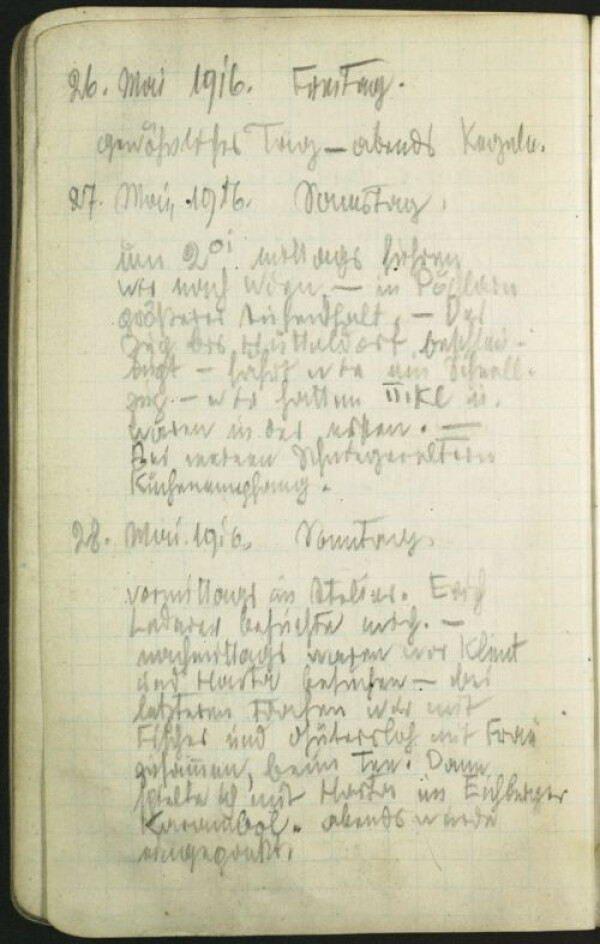 26. Mai 1916. Freitag.
gewöhnlicher Tag — abends Kegeln.
27. Mai, 1916. Samstag.
um 2 01 mittags fuhren
wir nach Wien. — in Pöchlarn
größerer Aufenthalt. — Der
Zug bis Hütteldorf beschleu-
nigt — fährt wie ein Schnell-
zug. — wir hatten II. Kl u.
waren in der ersten. —
Bei meinen Schwiegereltern
Kuchenempfang.
28. Mai. 1916. Sonntag.
vormittags im Atelier. Erich
Lederer besuchte mich. —
nachmittags waren wir Klimt
und Harta besuchen — bei
letzterem trafen wir mit
Fischer und Gütersloh mit Frau
zusammen, beim Tee. Dann
spielte ich mit Harta im Eichberger
Karambol. abends wurde
eingepackt.